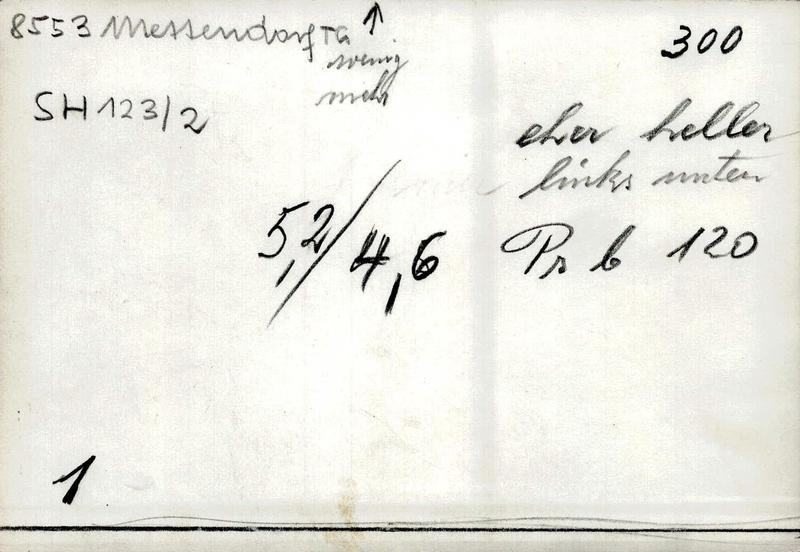 8553 Messendorf TG ↑
wenig
mehr
300
SH 123/2
eher heller
links unten
5,2/4,6
Pr b 120
1